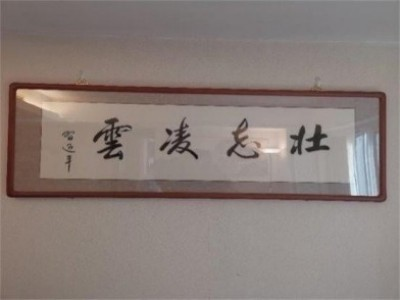 壮志凌雲